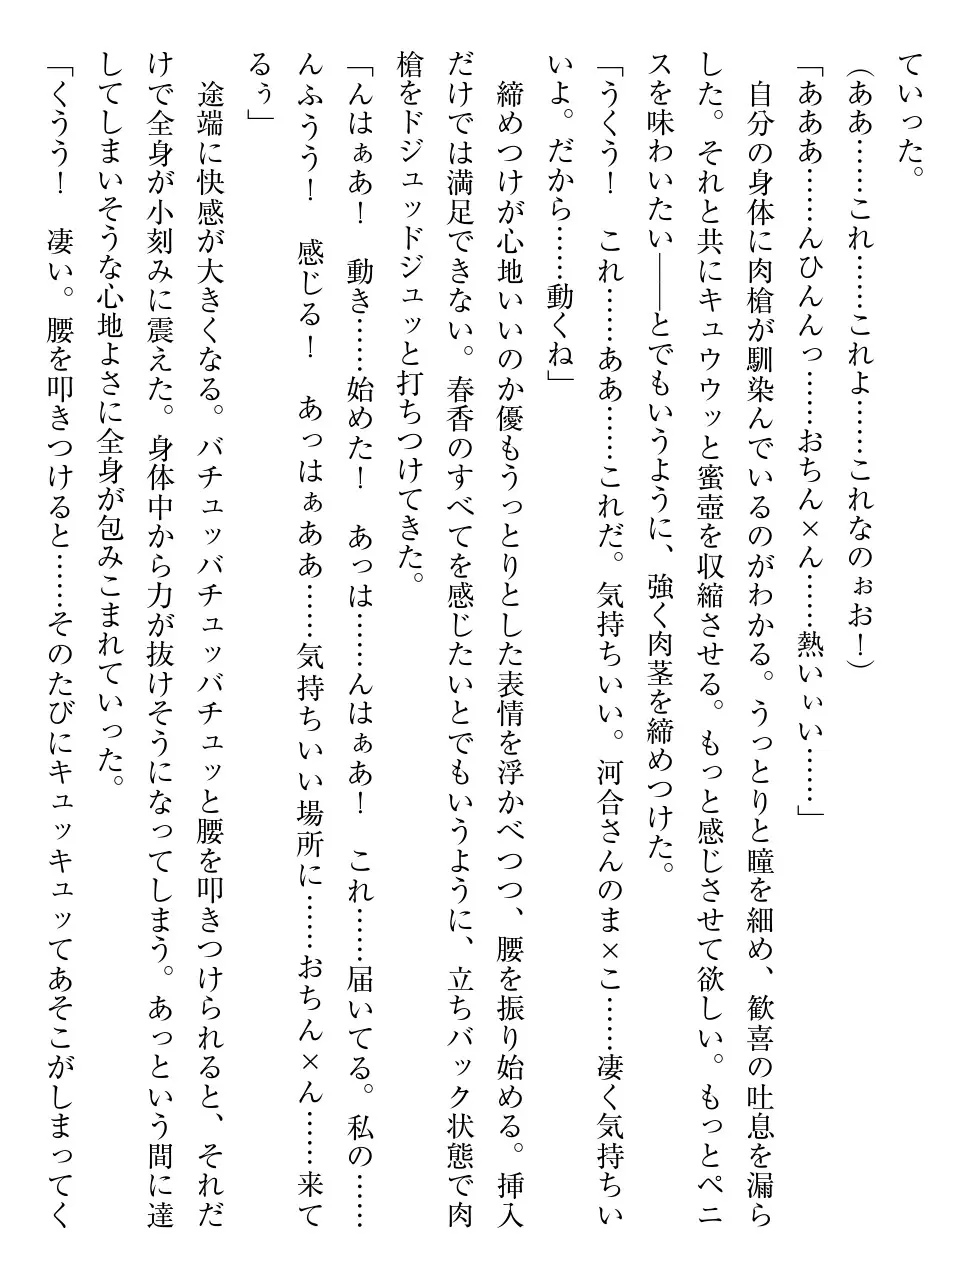 ていった。
（ああ……これ……これよ……これなのぉお！）
「あああ……んひんんっ……おちん×ん……熱いぃい……」
　自分の身体に肉槍が馴染んでいるのがわかる。うっとりと瞳を細め、歓喜の吐息を漏ら
した。それと共にキュウウッと蜜壺を収縮させる。もっと感じさせて欲しい。もっとペニ
スを味わいたい――とでもいうように、強く肉茎を締めつけた。
「うくう！　これ……ああ……これだ。気持ちいい。河合さんのま×こ……凄く気持ちい
いよ。だから……動くね」
　締めつけが心地いいのか優もうっとりとした表情を浮かべつつ、腰を振り始める。挿入
だけでは満足できない。春香のすべてを感じたいとでもいうように、立ちバック状態で肉
槍をドジュッドジュッと打ちつけてきた。
「んはぁあ！　動き……始めた！　あっは……んはぁあ！　これ……届いてる。私の……
んふうう！　感じる！　あっはぁああ……気持ちいい場所に……おちん×ん……来て
るぅ」
　途端に快感が大きくなる。バチュッバチュッバチュッと腰を叩きつけられると、それだ
けで全身が小刻みに震えた。身体中から力が抜けそうになってしまう。あっという間に達
してしまいそうな心地よさに全身が包みこまれていった。
「くうう！　凄い。腰を叩きつけると……そのたびにキュッキュッてあそこがしまってく